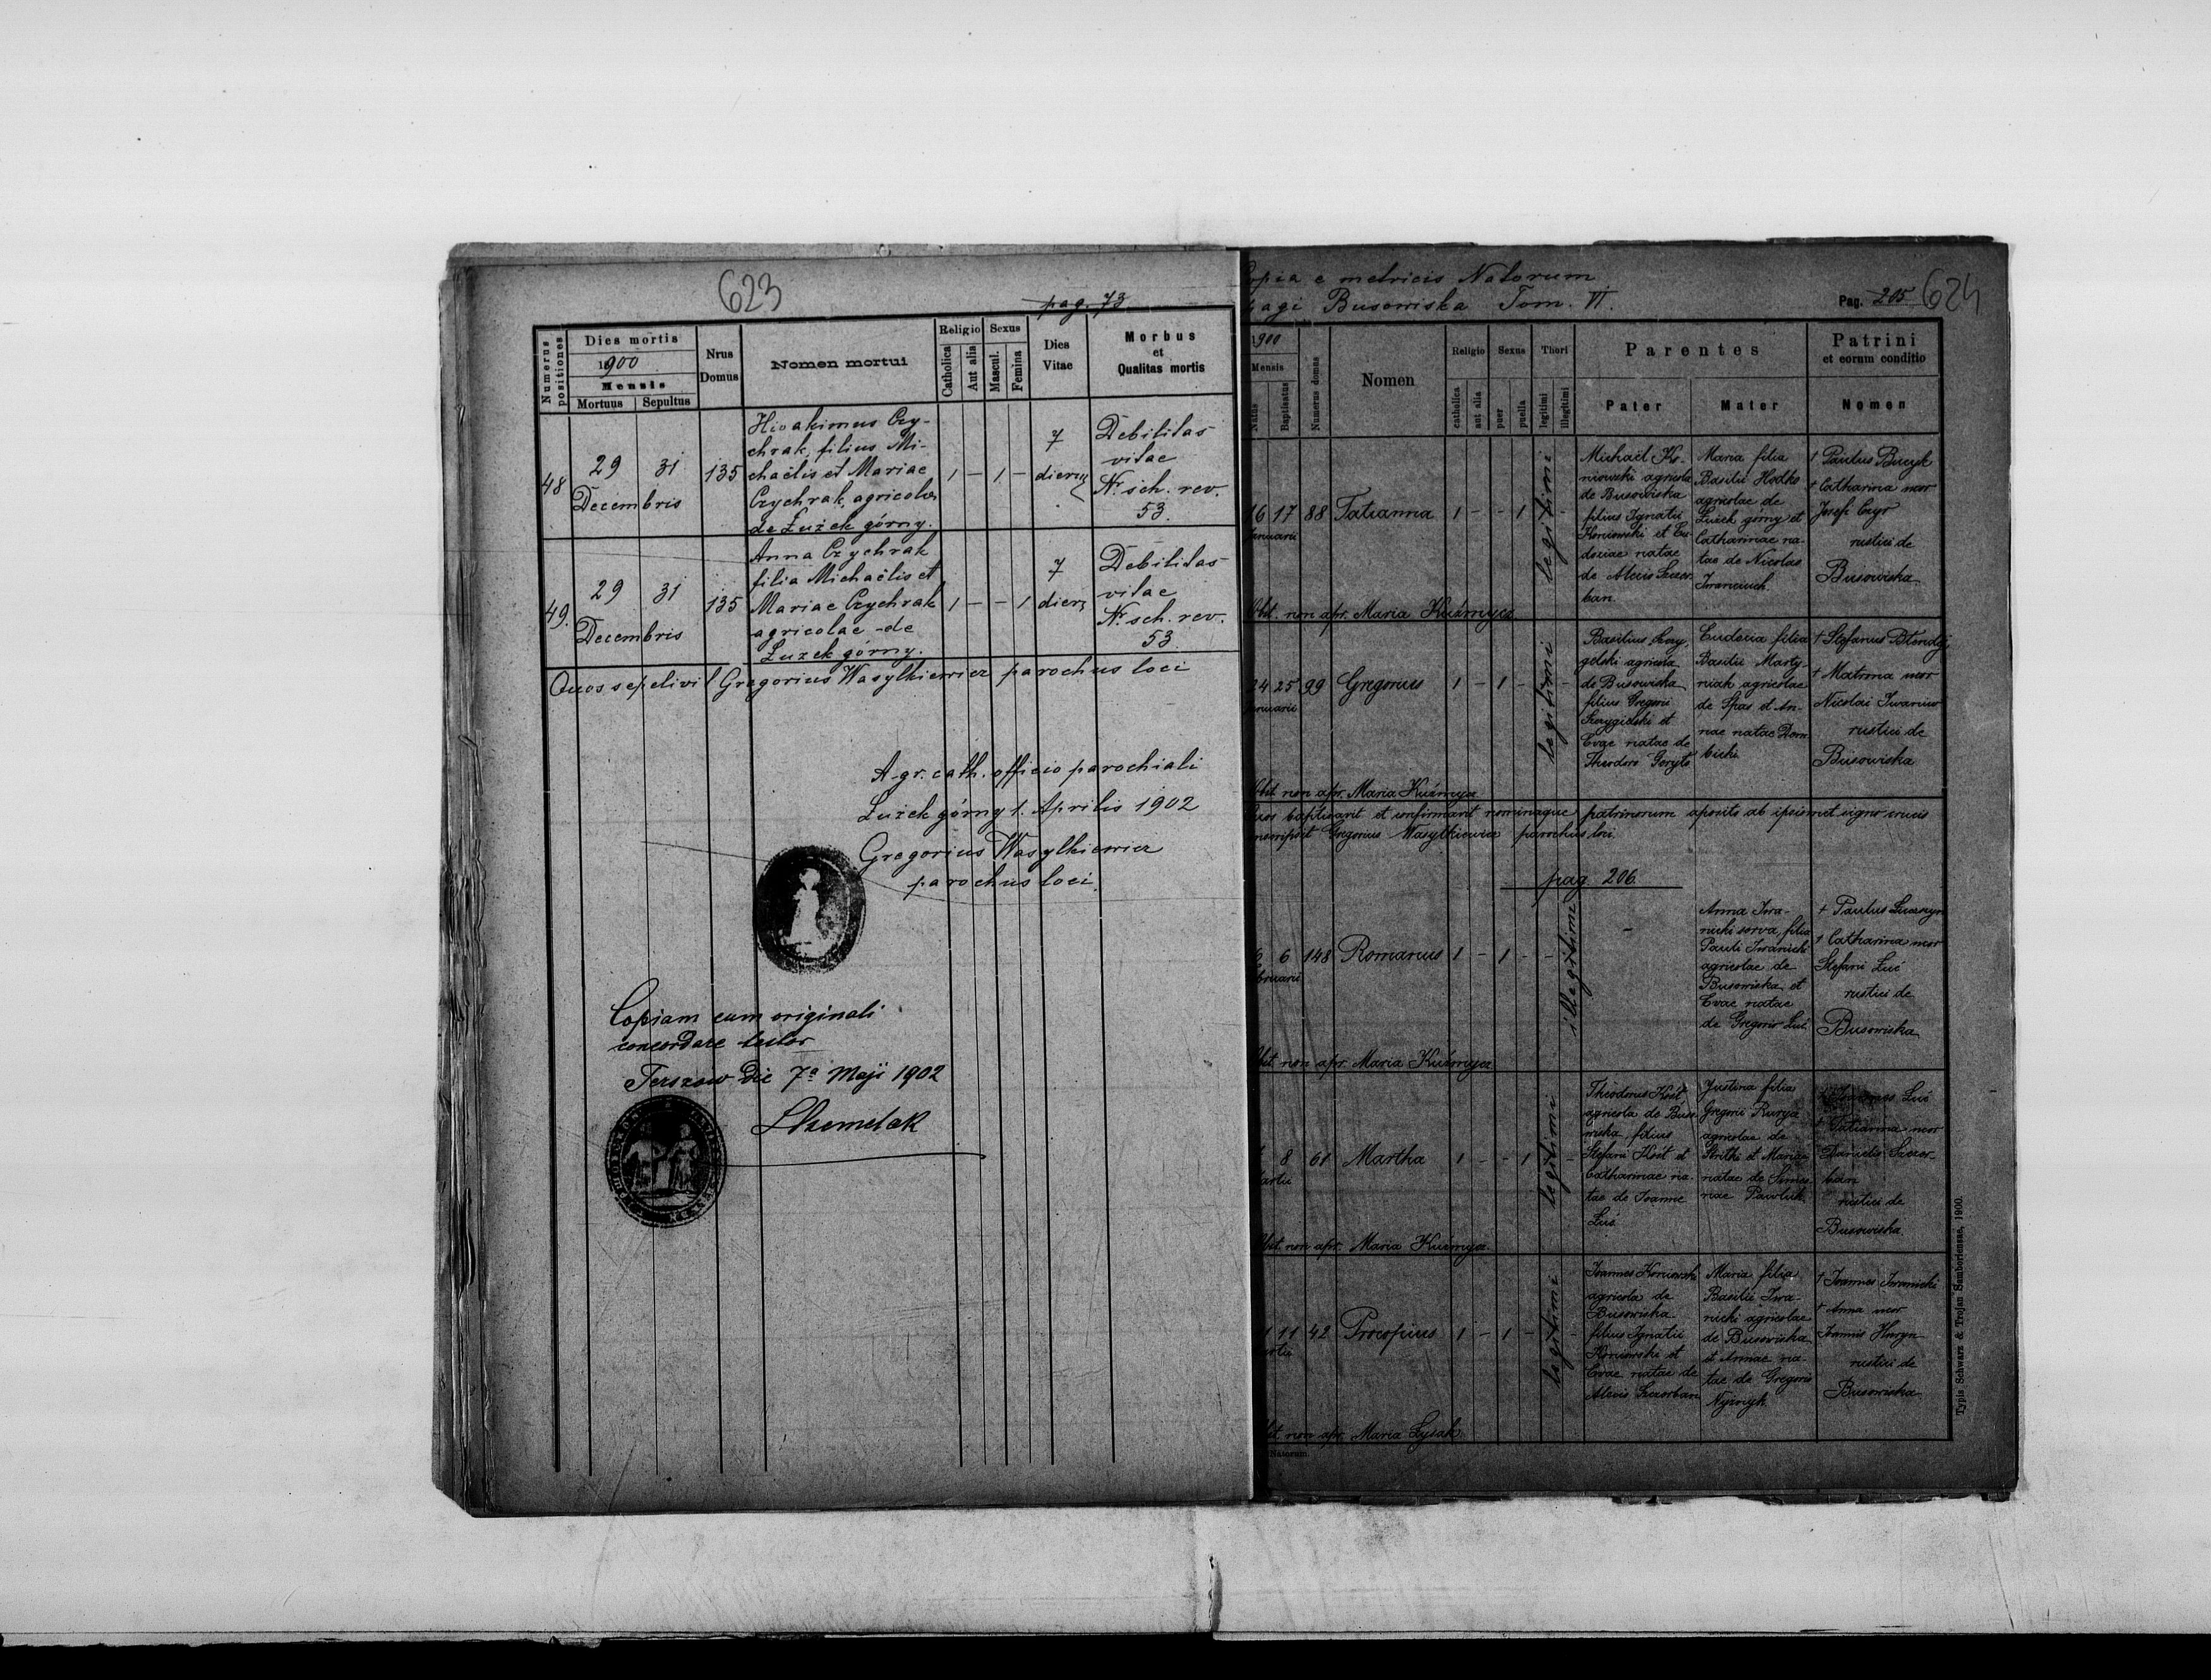 623
pag. 73
Numerus positiones
Dies mortis
1900
Mensis
Mortuus Sepultus
Nrus Domus
Nomen mortui
Religio
Catholica
Aut alia
Sexus
Mascul.
Femina
Dies Vitae
Morbus
et
Qualitas mortis
48
29 31
Decembris
135
Hioakimus Czy-
chrak, filius Mi-
chaëlis et Mariae
Czychrak, agricolae
de Łużek górny.
1 - 1 -
7
dierum
Debilitas
vitae
Nr. sch. rev.
53.
49.
29 31
Decembris
135
Anna Czychrak
filia Michaëlis et
Mariae Czychrak
agricolae - de
Łużek górny.
1 - - 1
7
dier
Debilitas
vitae
Nr. sch. rev.
53.
Quos sepelivit Gregorius Wasylkiewicz parochus loci
A gr. cath. officio parochiali
Łużek górny 1. Aprilis 1902
Gregorius Wasylkiewicz
parochus loci.
Copiam cum originali
concordare testor
Terszow die 7ª Maji 1902
624
Copia e metricis Natorum
pagi Busowiska Tom. VI.
Pag. 205
1900
Mensis
Natus
Baptisatus
Numerus domus
Nomen
Religio
catholica
aut alia
Sexus
puer
puella
Thori
legitimi
illegitimi
Parentes
Pater
Mater
Patrini
et eorum conditio
Nomen
16 17
Januarii
88
Tatianna
1 - - 1
legitimi
-
Michaël Ko-
niowski agricola
de Busowiska
filius Ignatii
Koniowski et Eu-
dociae natae
de Alexio Szczer-
ban.
Maria filia
Basilii Hodko
agricolae de
Łużek górny et
Catharinae na-
tae de Nicolao
Iwanciuch.
† Paulus Bucyk
† Catharina uxor
Josefi Czyr
rustici de
Busowiska
Obst. non apr. Maria Kuźmycz
24 25
Januarii
99
Gregorius
1 - 1 -
legitimi
-
Basilius Szczy-
gelski agricola
de Busowiska
filius Gregorii
Szczygielski et
Evae natae de
Theodoro Goryt
Eudocia filia
Basilii Marty-
niak agricolae
de Spas et An-
nae natae Dom
bicki.
† Stefanus
† Matrona uxor
Nicolai Iwaniw
rustici de
Busowiska
Obst. non apr. Maria Kuźmycz
Quos baptisavit et confirmavit nominaque patrinorum aposito ab ipsismet signo crucis
inscripsit Gregorius Wasylkiewicz parochus loci
pag 206.
6 6
Februarii
148
Romanus
1 - 1 - -
illegitimi
-
Anna Iwa-
nicki serva, filia
Pauli Iwanicki
agricolae de
Busowiska et
Evae natae
de Gregorio Luć
† Paulus
† Catharina uxor
Stefani Luć
rustici de
Busowiska
Obst. non apr. Maria Kuźmycz
8
Martii
61
Martha
1 - - 1
legitimi
-
Theodorus Kost
agricola de Buso-
wiska, filius
Stefani Kost et
Catharinae na-
tae de Joanne
Luć
Justina filia
Gregorii
agricolae de
Strilki et Mariae
natae de Simeo-
nae Pawliuk
Joannes Luć
† Tatianna uxor
Danielis Szczer-
ban
rustici de
Busowiska
Obst. non apr. Maria Kuźmycz.
11 11
Martii
42
Procopius
1 - 1 -
legitimi
-
Joannes Koniowski
agricola de
Busowiska
filius Ignatii
Koniowski et
Evae natae de
Alexio Szczerban
Maria filia
Basilii Iwa-
nicki agricolae
de Busowiska
et Annae na-
tae de Gregorio
† Joannes Iwanicki
† Anna uxor
Joannis
rustici de
Busowiska
Obst. non apr. Maria Łysak.
Natorum
Typis Schwarz & Trojan Samboriensae, 1900.